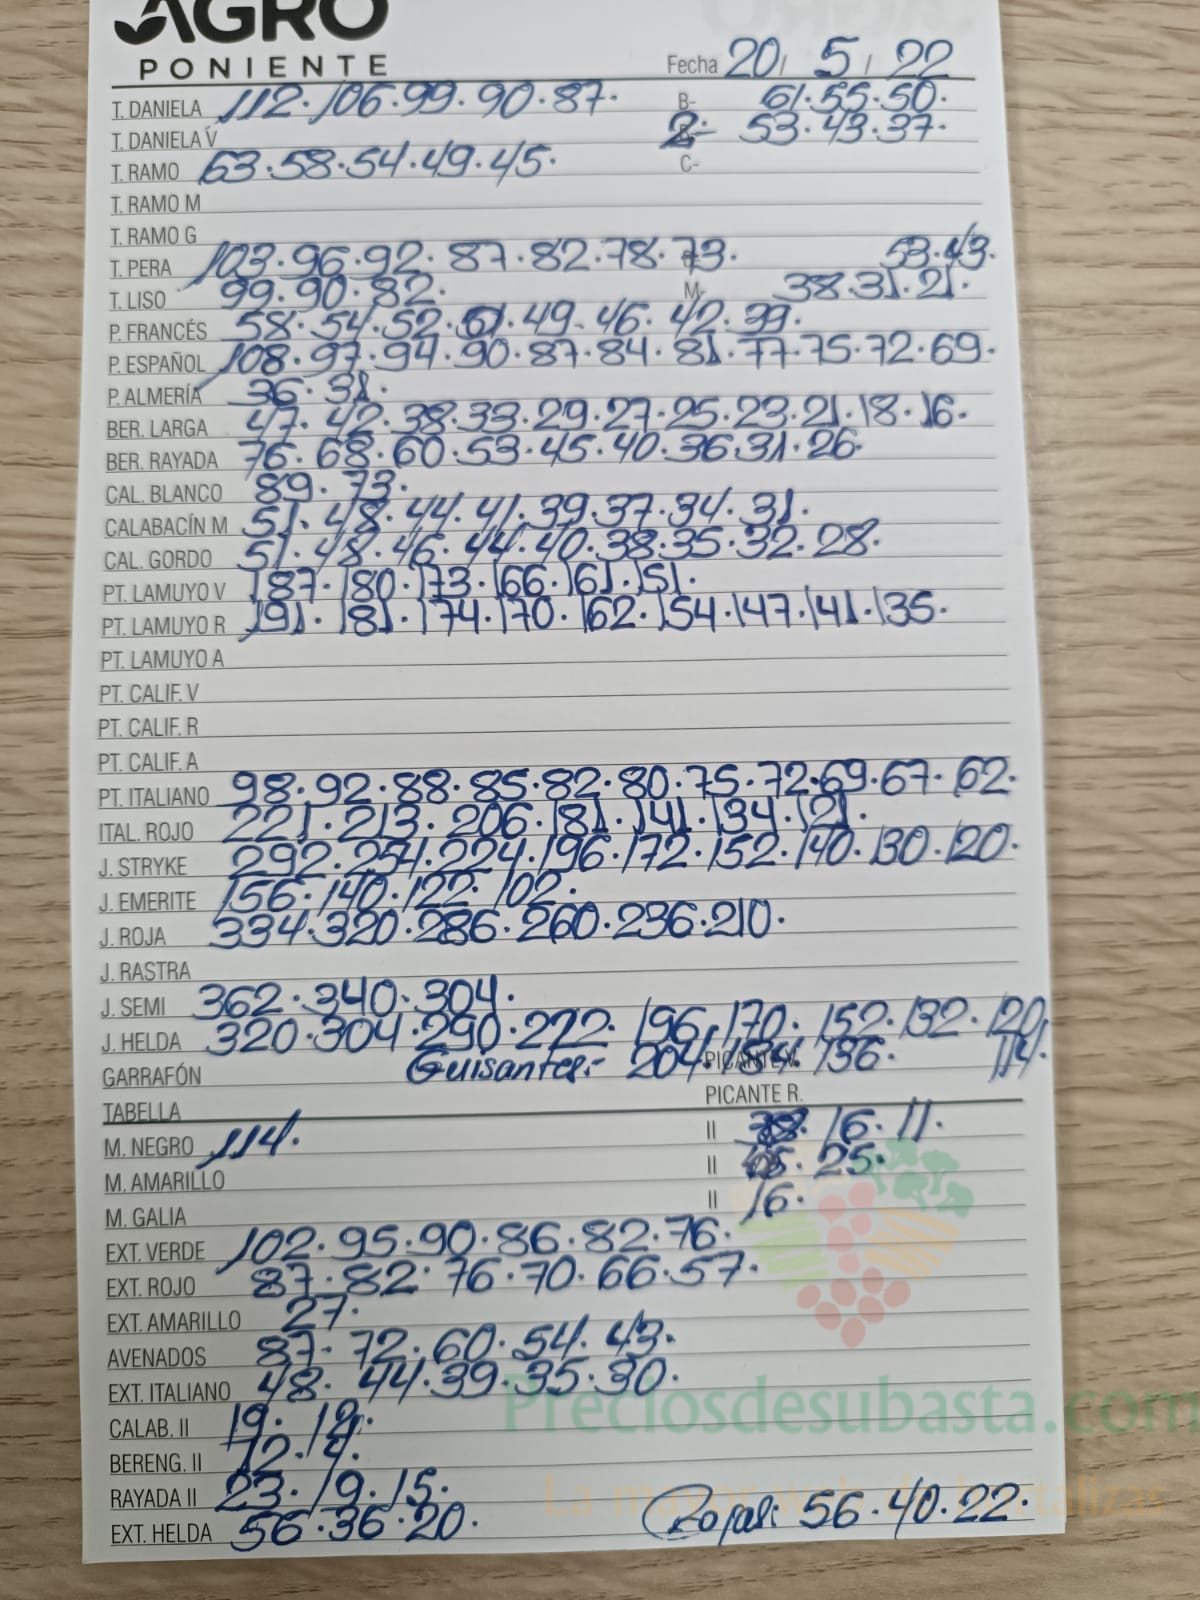 AGRO
PONIENTE
Fecha 20/ 5/ 22
T. DANIELA 112.106.99.90.87. B- 61.55.50.
T. DANIELA V 2- 53.43.37.
T. RAMO 63.58.54.49.45. C-
T. RAMO M
T. RAMO G
T. PERA 103.96.92.87.82.78.73. 53.43.
T. LISO 99.90.82. M- 38.31.21.
P. FRANCÉS 58.54.52.51.49.46.42.39.
P. ESPAÑOL 108.97.94.90.87.84.81.77.75.72.69.
P. ALMERÍA 36.31.
BER. LARGA 47.42.38.33.29.27.25.23.21.18.16.
BER. RAYADA 76.68.60.53.45.40.36.31.26.
CAL. BLANCO 89.73.
CALABACÍN M 51.48.44.41.39.37.34.31.
CAL. GORDO 51.48.46.44.40.38.35.32.28.
PT. LAMUYO V 187.180.173.166.161.151.
PT. LAMUYO R 191.181.174.170.162.154.147.141.135.
PT. LAMUYO A
PT. CALIF. V
PT. CALIF. R
PT. CALIF. A
PT. ITALIANO 98.92.88.85.82.80.75.72.69.67.62.
ITAL. ROJO 221.213.206.181.141.134.121.
J. STRYKE 292.254.224.196.172.152.140.130.120.
J. EMERITE 156.140.122.102.
J. ROJA 334.320.286.260.236.210.
J. RASTRA
J. SEMI 362.340.304.
J. HELDA 320.304.290.272.196.170.152.132.120.
GARRAFÓN Guisantes:- 204.184.136. PICANTE V. 114.
TABELLA PICANTE R.
M. NEGRO 114. II 16.11.
M. AMARILLO II 25.
M. GALIA II 16.
EXT. VERDE 102.95.90.86.82.76.
EXT. ROJO 87.82.76.70.66.57.
EXT. AMARILLO 27.
AVENADOS 87.72.60.54.43.
EXT. ITALIANO 48.44.39.35.30.
Preciosdesubasta.com
CALAB. II 19.
BERENG. II 12.
RAYADA II 23.19.15.
La mayor web de hortalizas
EXT. HELDA 56.36.20. Rojal: 56.40.22.